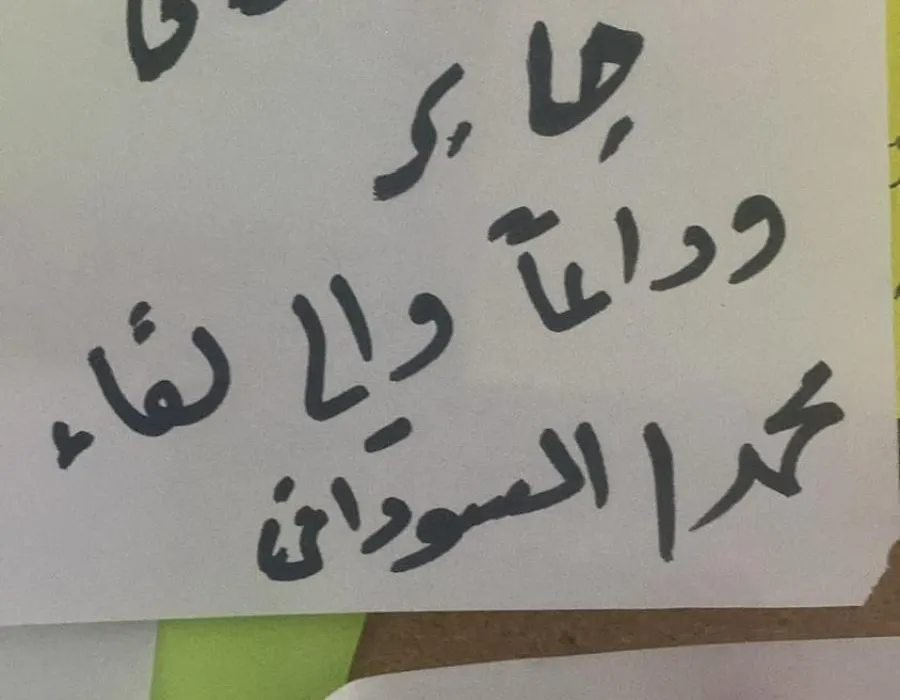 جابر
وداعاً والى لقاء
محمد ا السوداني